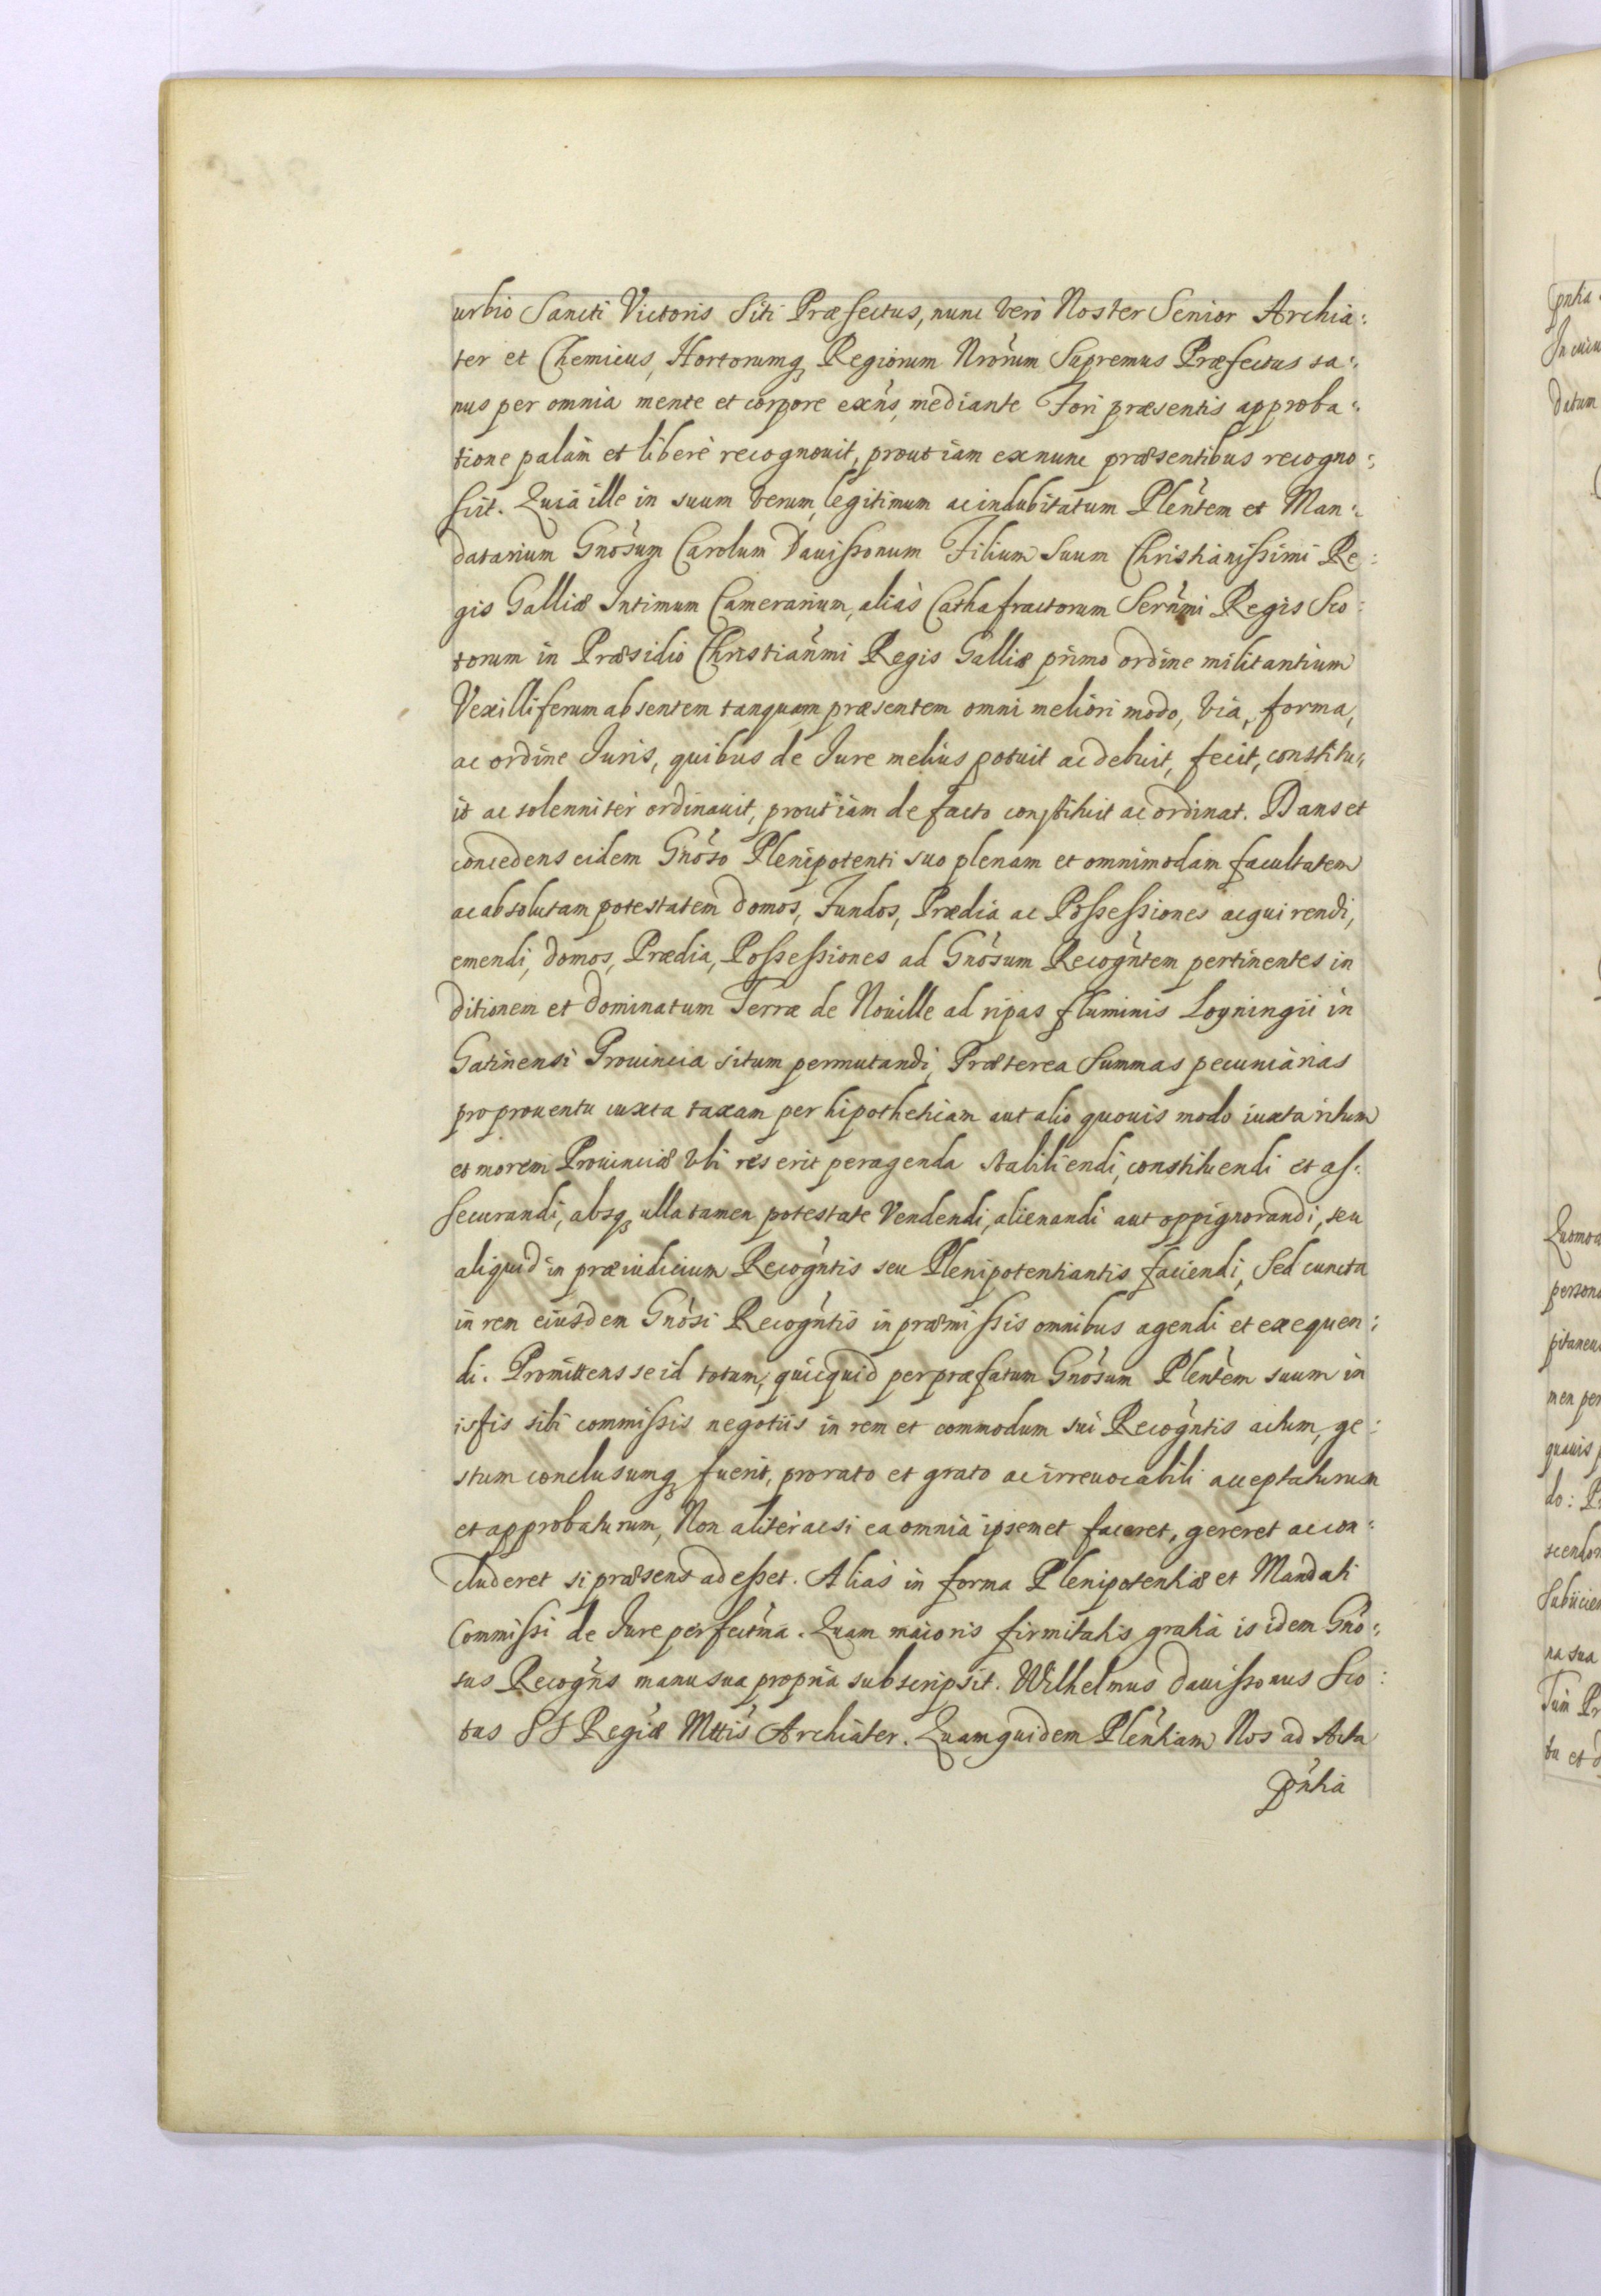 urbio Sancti Victoris Siti Præfectus, nunc verò Noster Senior Archia:
ter et Chemicus, Hortorumq₃ Regiorum Nrorum Supremus Præfectus sa:
nus per omnia mente et corpore exñs, mediante Fori præsentis approba:
tione palàm et liberè recognouit, prout iam ex nunc præsentibus recogno:
scit. Quia ille in suum verum, legitimum ac indubitatum Plentem et Man:
datarium Gnosum Carolum Dauissonum Filium Suum Christianissimi Re:
gis Galliæ Intimum Camerarium, aliàs Cathafractorum Sernmi Regis Sco:
torum in Præsidio Christianmi Regis Galliæ primo ordine militantium
Vexilliferum absentem tanquam præsentem omni meliori modo, via, forma,
ac ordine Iuris, quibus de Iure melius potuit ac debuit, fecit, constitu:
it ac solenniter ordinauit, prout iam de facto constituit ac ordinat. Dans et
concedens eidem Gnoso Plenipotenti suo plenam et omnimodam facultatem
ac absolutam potestatem domos, Fundos, Prædia ac Possessiones acquirendi,
emendi, domos, Prædia, Possessiones ad Gnosum Recogntem pertinentes in
ditionem et dominatum Terræ de Nouille ad ripas fluminis Loyningii in
Gatinensi Prouincia situm permutandi, Præterea Summas pecuniarias
pro prouentu iuxta taxam per hipothetiam aut alio quouis modo iuxta ritum
et morem Prouinciæ vbi res erit peragenda stabiliendi, constituendi et as:
securandi, absq₃ ulla tamen potestate Vendendi, alienandi aut oppignorandi, seu
aliquid in præiudicium Recogntis seu Plenipotentiantis faciendi, Sed cuncta
in rem eiusdem Gnosi Recogntis in præmissis omnibus agendi et exequen:
di. Promittens se id totum, quicquid per præfatum Gnosum Plentem suum in
istis sibi commissis negotiis in rem et commodum sui Recogntis actum, ge:
stum conclusumq₃ fuerit, pro rato et grato ac irreuocabili accepturum
et approbaturum, Non aliter ac si ea omnia ipsemet faceret, gereret ac con:
cluderet si præsens adesset. Aliàs in forma Plenipotentiæ et Mandati
Commissi de Iure perfectma. Quam maioris firmitatis gratia is idem Gno:
sus Recogns manu sua propria subscripsit. Wilhelmus Dauissonus Sco:
tus SS Regiæ Mttis Archiater. Quamquidem Plentiam Nos ad Acta
pntia